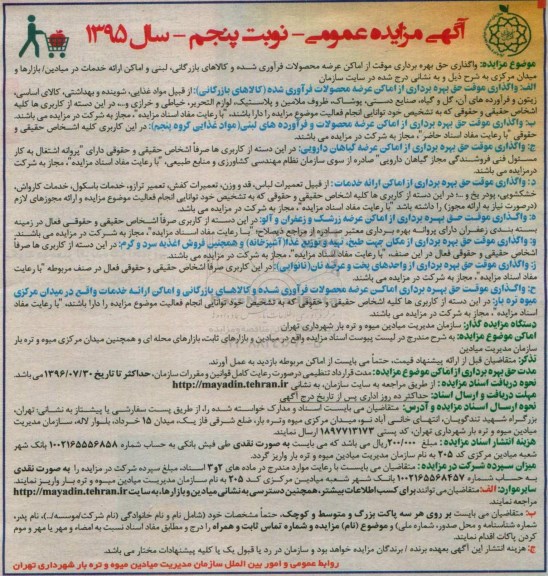 آگهی مزایده عمومی - نوبت پنجم - سال ۱۳۹۵
موضوع مزایده: واگذاری حق بهره برداری موقت از اماکن عرضه محصولات فرآوری شده و کالاهای بازرگانی، لبنی و اماکن ارائه خدمات در میادین/ بازارها و
میدان مرکزی به شرح ذیل و به نشانی درج شده در سایت سازمان
الف: واگذاری موقت حق بهره برداری از اماکن عرضه محصولات فرآوری شده (کالاهای بازرگانی): از قبیل مواد غذایی، شوینده و بهداشتی، کالای اساسی،
زیتون و فرآورده های آن، گل و گیاه، صنایع دستی، پوشاک، ظروف ملامین و پلاستیک، لوازم التحریر، خیاطی و خرازی و...، در این دسته از کاربری ها کلیه
اشخاص حقیقی و حقوقی که به تشخیص خود توانایی انجام فعالیت موضوع مزایده را دارا باشند، "با رعایت مفاد اسناد مزایده"، مجاز به شرکت می باشند.
ب: واگذاری موقت حق بهره برداری از اماکن عرضه محصولات و فرآورده های لبنی (مواد غذایی گروه پنجم): در این کاربری کلیه اشخاص حقیقی و
حقوقی "با رعایت مفاد اسناد حاضر"، مجاز به شرکت می باشند.
ج: واگذاری موقت حق بهره برداری از اماکن عرضه گیاهان دارویی: در این دسته از کاربری ها صرفاً اشخاص حقیقی و حقوقی دارای "پروانه اشتغال به کار
مسئول فنی فروشندگی مجاز گیاهان دارویی" صادره از سوی سازمان نظام مهندسی کشاورزی و منابع طبیعی، "با رعایت مفاد اسناد مزایده"، مجاز به شرکت
درمزایده می باشند.
د: واگذاری موقت حق بهره برداری از اماکن ارائه خدمات: از قبیل تعمیرات لباس، قد و وزن، تعمیرات کفش، تعمیر ترازو، خدمات باسکول، خدمات کارواش،
خشکشویی، پودر یخ و ...، در این دسته از کاربری ها کلیه اشخاص حقیقی و حقوقی که به تشخیص خود توانایی انجام فعالیت موضوع مزایده و ارائه مجوزهای لازم
(درصورت نیاز به ارائه مجوز) را داشته باشند "با رعایت مفاد اسناد مزایده"، مجاز به شرکت در مزایده می باشند.
ه: واگذاری موقت حق بهره برداری از اماکن عرضه زرشک و زعفران و آلو: در این دسته از کاربری صرفاً اشخاص حقیقی و حقوقی فعال در زمینه
بسته بندی زعفران دارای پروانه بهره برداری معتبر صادره از مراجع ذیصلاح، "با رعایت مفاد اسناد مزایده"، مجاز به شرکت در مزایده می باشند.
و: واگذاری موقت حق بهره برداری از مکان جهت طبخ، تهیه و توزیع غذا (آشپزخانه) و همچنین فروش اغذیه سرد و گرم: در این دسته از کاربری ها صرفاً
اشخاص حقیقی و حقوقی فعال در این صنف، "با رعایت مفاد اسناد مزایده"، مجاز به شرکت در مزایده می باشند.
ز: واگذاری موقت حق بهره برداری از واحدهای پخت و عرضه نان (نانوایی): در این کاربری صرفاً اشخاص حقیقی و حقوقی فعال در صنف مربوطه "با رعایت
مفاد اسناد مزایده"، مجاز به شرکت در مزایده می باشند.
ح: واگذاری موقت حق بهره برداری از اماکن عرضه محصولات فرآوری شده و کالاهای بازرگانی و اماکن ارائه خدمات واقع در میدان مرکزی
میوه تره بار: در این دسته از کاربری ها کلیه اشخاص حقیقی و حقوقی که به تشخیص خود توانایی انجام فعالیت موضوع مزایده را دارا باشند، "با رعایت مفاد
اسناد مزایده"، مجاز به شرکت در مزایده می باشند.
دستگاه مزایده گذار: سازمان مدیریت میادین میوه و تره بار شهرداری تهران
اماکن موضوع مزایده: به شرح مندرج در لیست پیوست اسناد مزایده واقع در میادین و بازارهای ثابت، بازارهای محله ای و همچنین میدان مرکزی میوه و تره بار
سازمان مدیریت میادین
تذکر: متقاضیان قبل از ارائه پیشنهاد قیمت، حتماً می بایست از اماکن مربوطه بازدید به عمل آورند.
مدت حق بهره برداری از اماکن موضوع مزایده: مدت قرارداد تنظیمی درصورت رعایت کامل قوانین و مقررات سازمان، حداکثر تا تاریخ ۱۳۹۶/۰۷/۳۰ می باشد.
نحوه دریافت اسناد مزایده: از طریق مراجعه به سایت سازمان، به نشانی http://mayadin.tehran.ir
مهلت دریافت و ارسال اسناد: حداکثر ده روز اداری پس از تاریخ درج آگهی
نحوه ارسال اسناد مزایده و آدرس: متقاضیان می بایست اسناد و مدارک خواسته شده را، از طریق پست سفارشی یا پیشتاز به نشانی تهران،
بزرگراه شهید تندگویان، انتهای خاکی آباد نو، میدان مرکزی میوه وتره بار، ضلع شرقی فاز یک، میدان ۱۵ خرداد، بلوار لاله، سازمان مدیریت
میادین میوه و تره بار شهرداری تهران، کد پستی ۱۸۹۷۷۱۳۱۷۳ ارسال نمایند.
هزینه انتشار اسناد مزایده: مبلغ ۲۰۰/۰۰۰ ریال می باشد که می بایست به صورت نقدی طی فیش بانکی به حساب شماره ۱۰۰۲۱۶۵۵۵۶۸۵۸ بانک شهر
شعبه میادین مرکزی کد ۲۰۵ به نام سازمان مدیریت میادین میوه و تره بار واریز گردد.
میزان سپرده شرکت در مزایده: متقاضیان می بایست با رعایت موارد مندرج در ماده های ۲و۳ اسناد، مبلغ سپرده شرکت در مزایده را به صورت نقدی
به حساب شماره ۱۰۰۲۱۶۵۵۶۸۴۵۷ بانک شهر شعبه میادین مرکزی کد ۲۰۵ به نام سازمان مدیریت میادین میوه و تره بار واریز نمایند.
سایر موارد: الف: متقاضیان می توانند برای کسب اطلاعات بیشتر، همچنین دسترسی به نشانی میادین و بازارها، به سایت http://mayadin.tehran.ir
مراجعه نمایند.
ب: متقاضیان می بایست بر روی هر سه پاکت بزرگ و متوسط و کوچک، حتماً مشخصات خود (شامل نام و نام خانوادگی (نام شرکت/موسسه/...)، نام پدر،
شماره شناسنامه و محل صدور، شماره ملی) و موضوع (نام) مزایده و شماره تماس ثابت و همراه را درج و مطابق مفاد اسناد نسبت به امضاء و مهر یا مهر و موم
کردن پاکات اقدام نمایند.
ج: هزینه انتشار این آگهی بعهده برنده / برندگان مزایده خواهد بود و سازمان در رد یا قبول یک یا کلیه پیشنهادات مختار می باشد.
روابط عمومی و امور بین الملل سازمان مدیریت میادین میوه و تره بار شهرداری تهران